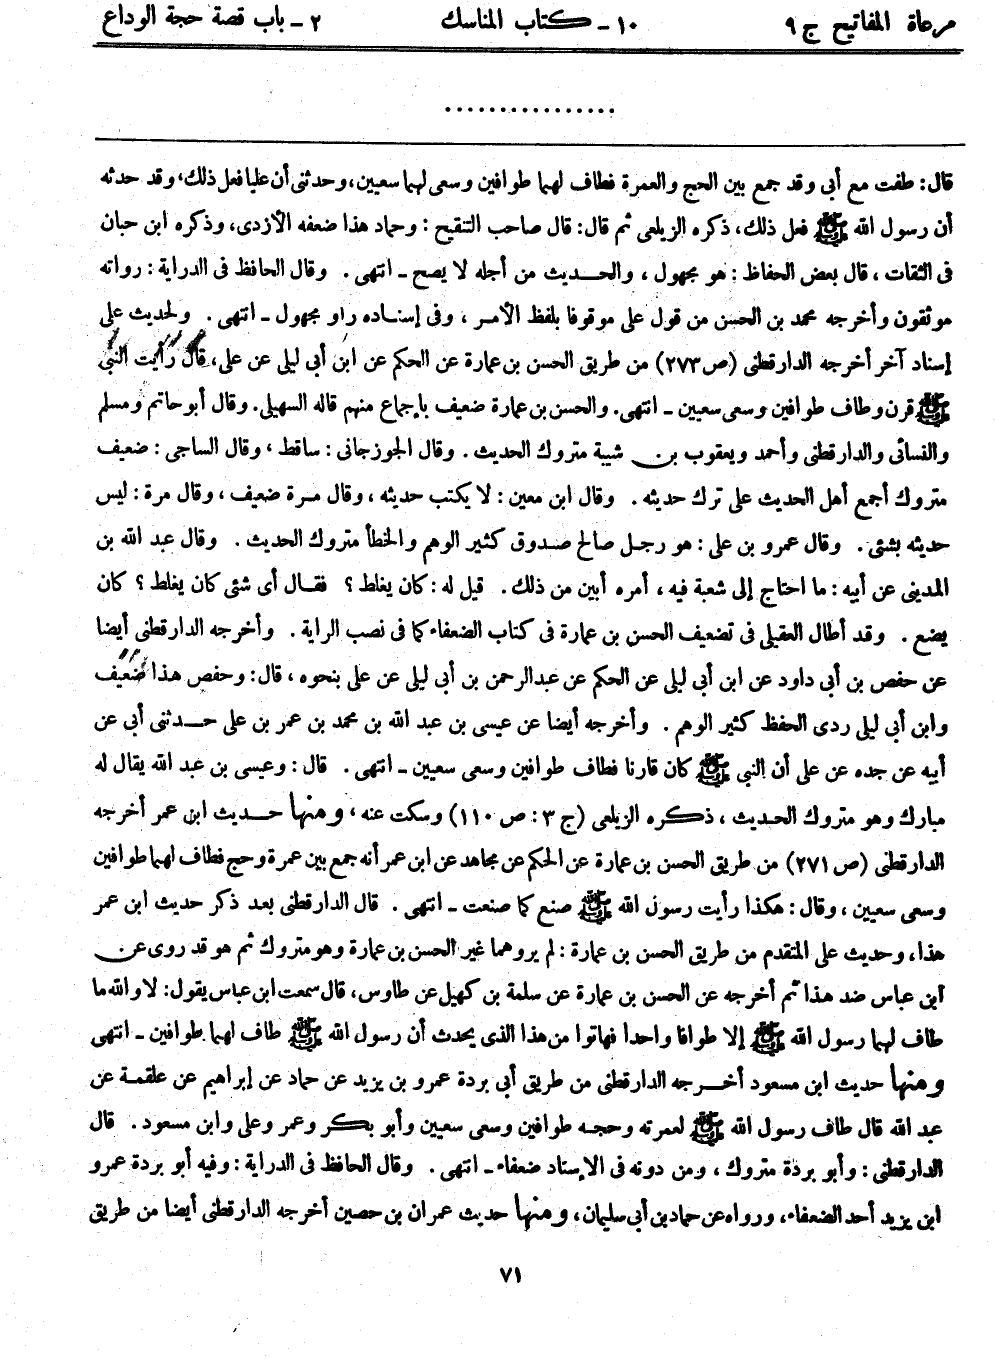 مرعاة المفاتيح ج ٩ ١٠ - كتاب المناسك ٢ - باب قصة حجة الوداع
................
قال: طفت مع أبي وقد جمع بين الحج والعمرة فطاف لهما طوافين وسعى لهما سعيين، وحدثني أن عليا فعل ذلك، وقد حدثه
أن رسول الله ﷺ فعل ذلك، ذكره الزيلعي ثم قال: قال صاحب التنقيح: وحماد هذا ضعفه الأزدي، وذكره ابن حبان
في الثقات، قال بعض الحفاظ: هو مجهول، والحديث من أجله لا يصح - انتهى. وقال الحافظ في الدراية: رواته
موثقون وأخرجه محمد بن الحسن من قول على موقوفا بلفظ الأمر، وفي إسناده راو مجهول - انتهى. ولحديث على
إسناد آخر أخرجه الدارقطني (ص ٢٧٣) من طريق الحسن بن عمارة عن الحكم عن ابن أبي ليلى عن على، قال رأيت النبي
ﷺ قرن وطاف طوافين وسعى سعيين - انتهى. والحسن بن عمارة ضعيف بإجماع منهم قاله السهيلي. وقال أبو حاتم ومسلم
والنسائي والدارقطني وأحمد ويعقوب بن شيبة متروك الحديث. وقال الجوزجاني: ساقط، وقال الساجي: ضعيف
متروك أجمع أهل الحديث على ترك حديثه. وقال ابن معين: لا يكتب حديثه، وقال مرة ضعيف، وقال مرة: ليس
حديثه بشئ. وقال عمرو بن على: هو رجل صالح صدوق كثير الوهم والخطأ متروك الحديث. وقال عبد الله بن
المديني عن أبيه: ما احتاج إلى شعبة فيه، أمره أبين من ذلك. قيل له: كان يغلط؟ فقال أى شئ كان يغلط؟ كان
يضع. وقد أطال العقيلي في تضعيف الحسن بن عمارة في كتاب الضعفاء كما في نصب الراية. وأخرجه الدارقطني أيضا
عن حفص بن أبي داود عن ابن أبي ليلى عن الحكم عن عبدالرحمن بن أبي ليلى عن على بنحوه، قال: وحفص هذا ضعيف
وابن أبي ليلى ردى الحفظ كثير الوهم. وأخرجه أيضا عن عيسى بن عبد الله بن محمد بن عمر بن على حدثني أبي عن
أبيه عن جده عن على أن النبي ﷺ كان قارنا فطاف طوافين وسعى سعيين - انتهى. قال: وعيسى بن عبد الله يقال له
مبارك وهو متروك الحديث، ذكره الزيلعي (ج ٣: ص ١١٠) وسكت عنه، ومنها حديث ابن عمر أخرجه
الدارقطني (ص ٢٧١) من طريق الحسن بن عمارة عن الحكم عن مجاهد عن ابن عمر أنه جمع بين عمرة وحج فطاف لهما طوافين
وسعى سعيين، وقال: هكذا رأيت رسول الله ﷺ صنع كما صنعت - انتهى. قال الدارقطني بعد ذكر حديث ابن عمر
هذا، وحديث على المتقدم من طريق الحسن بن عمارة: لم يروهما غير الحسن بن عمارة وهو متروك ثم هو قد روى عن
ابن عباس ضد هذا ثم أخرجه عن الحسن بن عمارة عن سلمة بن كهيل عن طاوس، قال سمعت ابن عباس يقول: لا والله ما
طاف لهما رسول الله ﷺ إلا طوافا واحدا فهاتوا من هذا الذى يحدث أن رسول الله ﷺ طاف لهما طوافين - انتهى
ومنها حديث ابن مسعود أخرجه الدارقطني من طريق أبي بردة عمرو بن يزيد عن حماد عن إبراهيم عن علقمة عن
عبد الله قال طاف رسول الله ﷺ لعمرته وحجه طوافين وسعى سعيين وأبو بكر وعمر وعلى وابن مسعود. قال
الدارقطني: وأبو بردة متروك، ومن دونه في الإسناد ضعفاء - انتهى. وقال الحافظ في الدراية: وفيه أبو بردة عمرو
ابن يزيد أحد الضعفاء، ورواه عن حماد بن أبي سليمان، ومنها حديث عمران بن حصين أخرجه الدارقطني أيضا من طريق
٧١